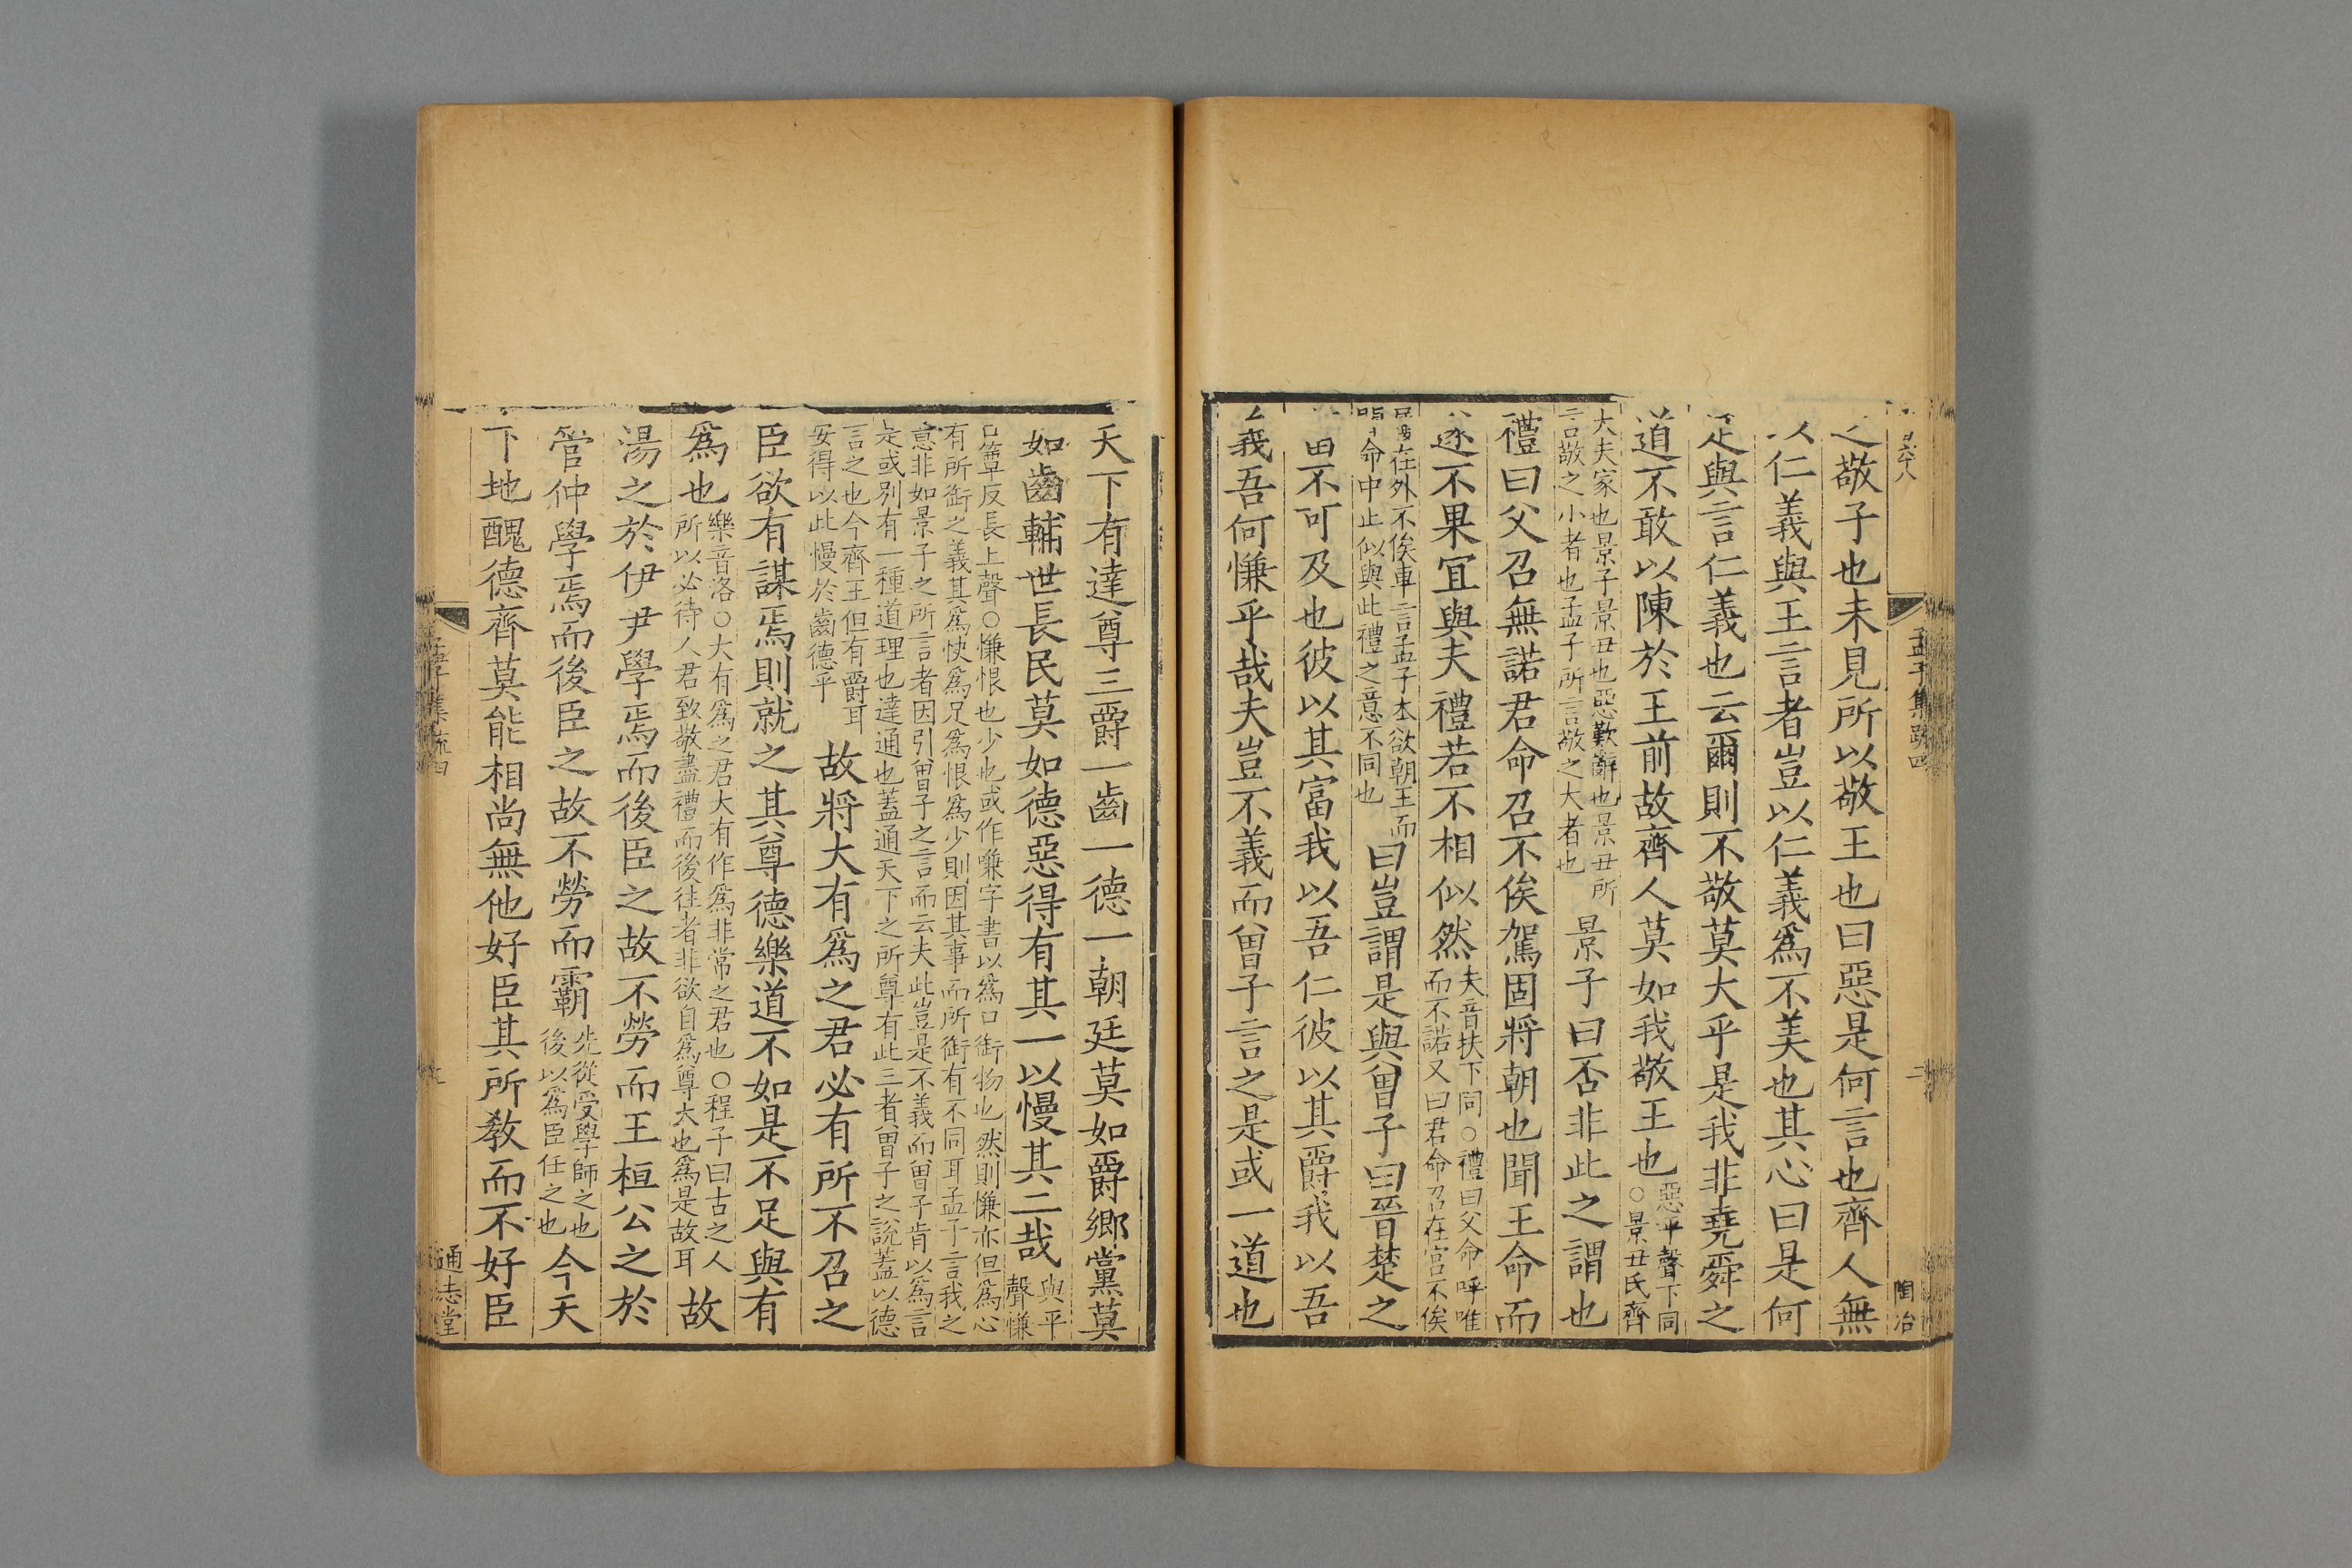 之敬子也未見所以敬王也曰惡是何言也齊人無
以仁義與王言者豈以仁義爲不美也其心曰是何
足與言仁義也云爾則不敬莫大乎是我非堯舜之
道不敢以陳於王前故齊人莫如我敬王也惡平聲下同
○景丑氏齊
大夫家也景子景丑也惡歎辭也景丑所
言敬之小者也孟子所言敬之大者也景子曰否非此之謂也
禮曰父召無諾君命召不俟駕固將朝也聞王命而
遂不果宜與夫禮若不相似然夫音扶下同○禮曰父命呼唯
而不諾又曰君命召在官不俟
屨在外不俟車言孟子本欲朝王而
聞命中止似與此禮之意不同也曰豈謂是與曾子曰晉楚之
富不可及也彼以其富我以吾仁彼以其爵我以吾
義吾何慊乎哉夫豈不義而曾子言之是或一道也
天下有達尊三爵一齒一德一朝廷莫如爵鄉黨莫
如齒輔世長民莫如德惡得有其一以慢其二哉與平
聲慊
口簟反長上聲○慊恨也少也或作嗛字書以爲口銜物也然則慊亦但爲心
有所銜之義其爲快爲足爲恨爲少則因其事而所銜有不同耳孟子言我之
意非如景子之所言者因引曾子之言而云夫此豈是不義而曾子肯以爲言
是或別有一種道理也達通也蓋通天下之所尊有此三者曾子之說蓋以德
言之也今齊王但有爵耳
安得以此慢於齒德乎故將大有爲之君必有所不召之
臣欲有謀焉則就之其尊德樂道不如是不足與有
爲也樂音洛○大有爲之君大有作爲非常之君也○程子曰古之人
所以必待人君致敬盡禮而後往者非欲自爲尊大也爲是故耳故
湯之於伊尹學焉而後臣之故不勞而王桓公之於
管仲學焉而後臣之故不勞而霸先從受學師之也
後以爲臣任之也今天
下地醜德齊莫能相尚無他好臣其所敎而不好臣
孟子集疏四
二
陶冶
孟子集疏四
通志堂